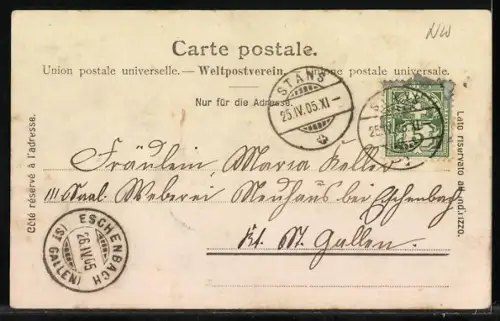 NW
Carte postale.
Union postale universelle. — Weltpostverein. — Unione postale universale.
Nur für die Adresse.
STANS
25.IV.05.XI-
Côté réservé à l'adresse.
Lato riservato all'indirizzo.
Fräulein, Maria Keller
III Saal Weberei Neuhaus bei Eschenbach
Kt. St. Gallen.
ESCHENBACH
26.IV.05
(ST GALLEN)